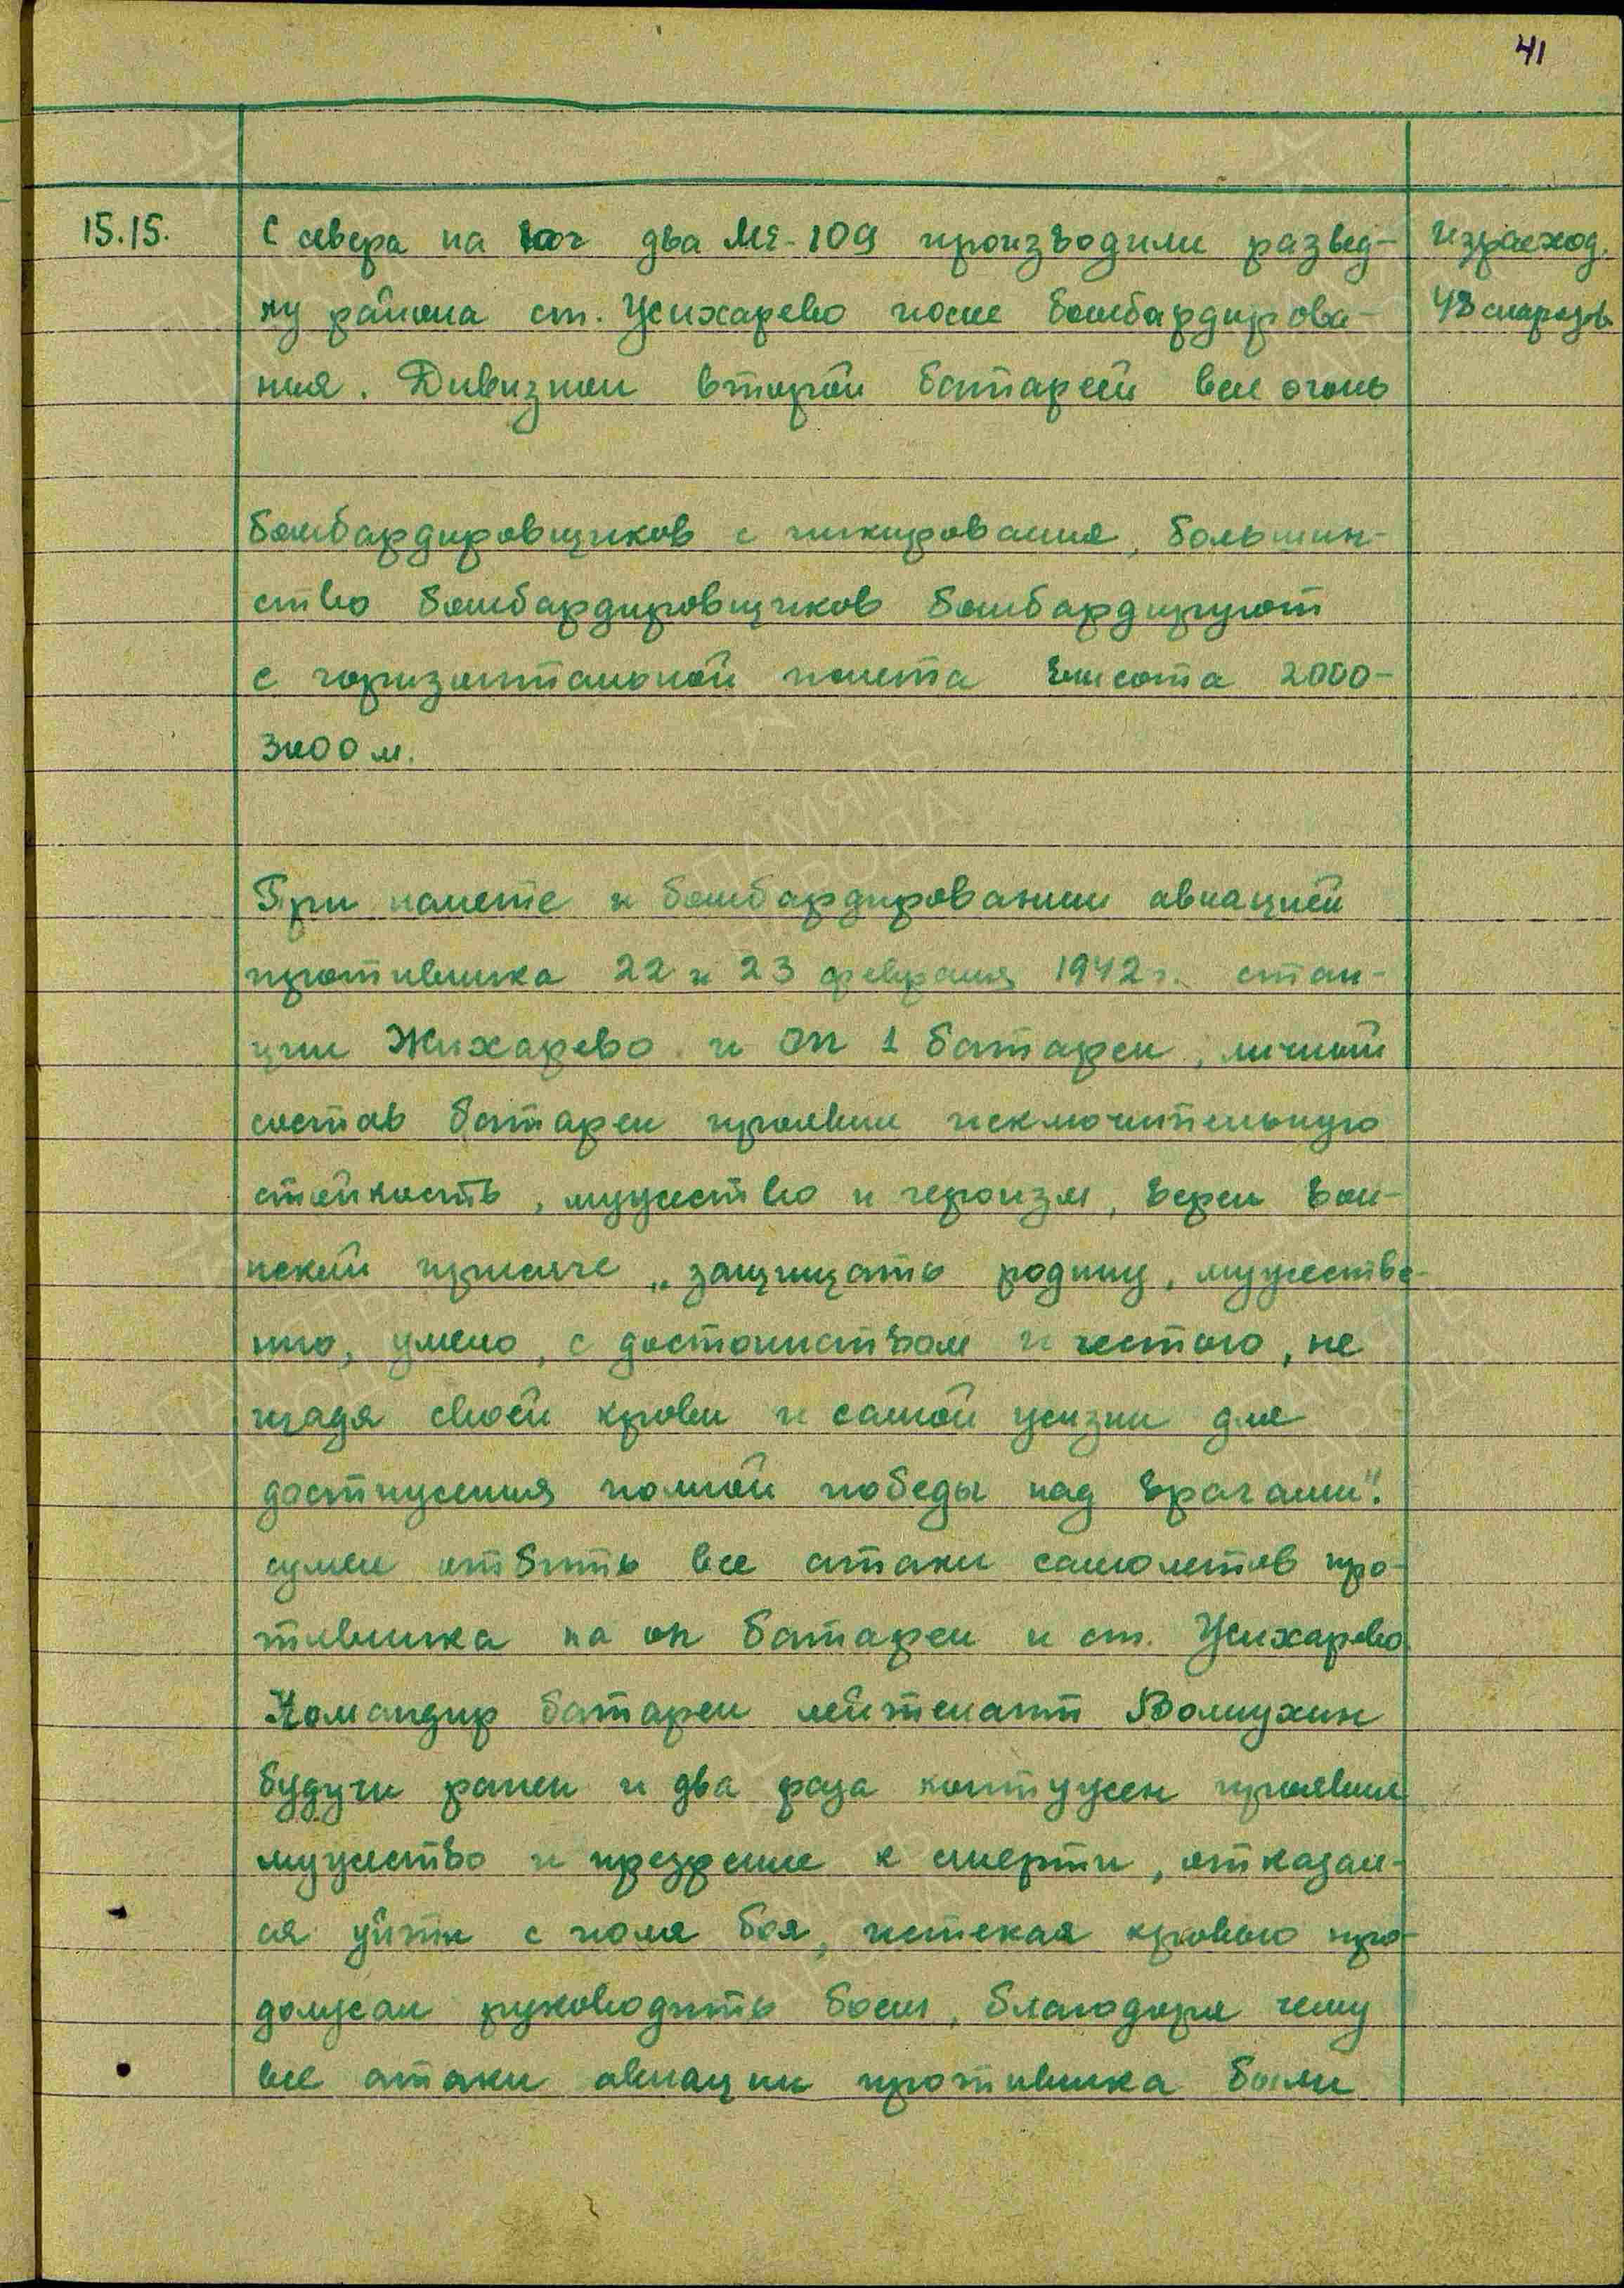 41
15.15.
С севера на юг два МЕ-109 производили развед-
ку района ст. Жихарево после бомбардирова-
ния. Дивизион второй батареей вел огонь
израсход.
48 снарядов
бомбардировщиков с пикирования, большин-
ство бомбардировщиков бомбардируют
с горизонтальной полета высота 2000-
3000 м.
При налете и бомбардировании авиацией
противника 22 и 23 февраля 1942 г. стан-
ции Жихарево и ОП 1 батареи, личный
состав батареи проявил исключительную
стойкость, мужество и героизм, верен вои-
нской присяге „защищать родину, мужестве-
нно, умело, с достоинством и честью, не
щадя своей крови и самой жизни для
достижения полной победы над врагами".
сумел отбить все атаки самолетов про-
тивника на оп батареи и ст. Жихарево
Командир батареи лейтенант
будучи ранен и два раза контужен проявил
мужество и презрение к смерти, отказал-
ся уйти с поля боя, истекая кровью про-
должал руководить боем, благодаря чему
все атаки авиации противника были
ПАМЯТЬ
НАРОДА